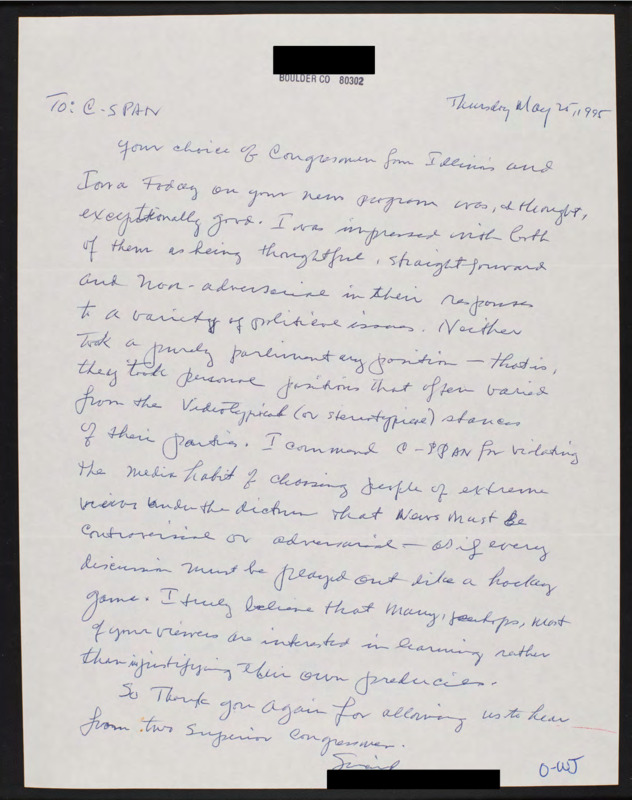 BOULDER CO 80302
To: C-SPAN
Thursday May 25, 1995
Your choice of Congressmen from Illinois and
Iowa Today on your news program was, I thought,
exceptionally good. I was impressed with both
of them as being thoughtful, straightforward
and non-adversarial in their responses
to a variety of political issues. Neither
Took a purely parlimentary position — that is,
they took personal positions that often varied
from the Videotypical (or stereotypical) stances
of their parties. I commend C-SPAN for violating
the media habit of choosing people of extreme
views under the dictum that News Must Be
Controversial or adversarial — as if every
discussion must be played out like a hockey
game. I truly believe that many, perhaps, most
of your viewers are interested in learning rather
than justifying their own
So Thank you again for allowing us to hear
from two superior Congressmen.
O-WJ